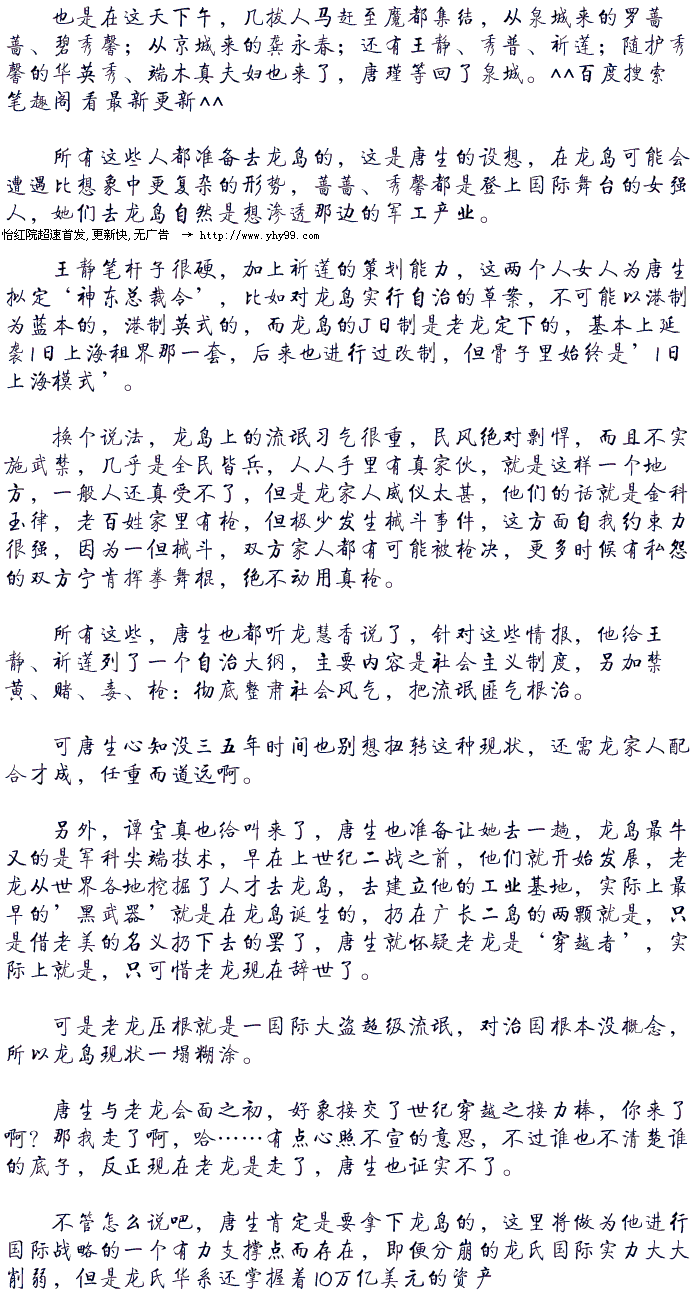 也是在这天下午，几拔人马赶至魔都集结，从泉城来的罗蔷
蔷、碧秀馨；从京城来的龚永春；还有王静、秀普、祈莲；随护秀
馨的华英秀、端木真夫妇也来了，唐瑾等回了泉城。^^百度搜索
笔趣阁看最新更新^^
所有这些人都准备去龙岛的，这是唐生的设想，在龙岛可能会
遭遇比想象中更复杂的形势，蔷蔷、秀馨都是登上国际舞台的女强
人，她们去龙岛自然是想渗透那边的军工产业。
怡红院超速首发,更新快,无广告 → http://www.yhy99.com
王静笔杆子很硬，加上祈莲的策划能力，这两个人女人为唐生
拟定‘神东总裁令’，比如对龙岛实行自治的草案，不可能以港制
为蓝本的，港制英式的，而龙岛的J日制是老龙定下的，基本上延
袭1日上海租界那一套，后来也进行过改制，但骨子里始终是’1日
上海模式’。
换个说法，龙岛上的流氓习气很重，民风绝对剽悍，而且不实
施武禁，几乎是全民皆兵，人人手里有真家伙，就是这样一个地
方，一般人还真受不了，但是龙家人威仪太甚，他们的话就是金科
玉律，老百姓家里有枪，但极少发生械斗事件，这方面自我约束力
很强，因为一但械斗，双方家人都有可能被枪决，更多时候有私怨
的双方宁肯挥拳舞棍，绝不动用真枪。
所有这些，唐生也都听龙慧香说了，针对这些情报，他给王
静、祈莲列了一个自治大纲，主要内容是社会主义制度，另加禁
黄、赌、毒、枪：彻底整肃社会风气，把流氓匪气根治。
可唐生心知没三五年时间也别想扭转这种现状，还需龙家人配
合才成，任重而道远啊。
另外，谭宝真也给叫来了，唐生也准备让她去一趟，龙岛最牛
叉的是军科尖端技术，早在上世纪二战之前，他们就开始发展，老
龙从世界各地挖掘了人才去龙岛，去建立他的工业基地，实际上最
早的’黑武器’就是在龙岛诞生的，扔在广长二岛的两颗就是，只
是借老美的名义扔下去的罢了，唐生就怀疑老龙是‘穿越者’，实
际上就是，只可惜老龙现在辞世了。
可是老龙压根就是一国际大盗超级流氓，对治国根本没概念，
所以龙岛现状一塌糊涂。
唐生与老龙会面之初，好象接交了世纪穿越之接力棒，你来了
啊？那我走了啊，哈……有点心照不宣的意思，不过谁也不清楚谁
的底子，反正现在老龙是走了，唐生也证实不了。
不管怎么说吧，唐生肯定是要拿下龙岛的，这里将做为他进行
国际战略的一个有力支撑点而存在，即便分崩的龙氏国际实力大大
削弱，但是龙氏华系还掌握着10万亿美元的资产